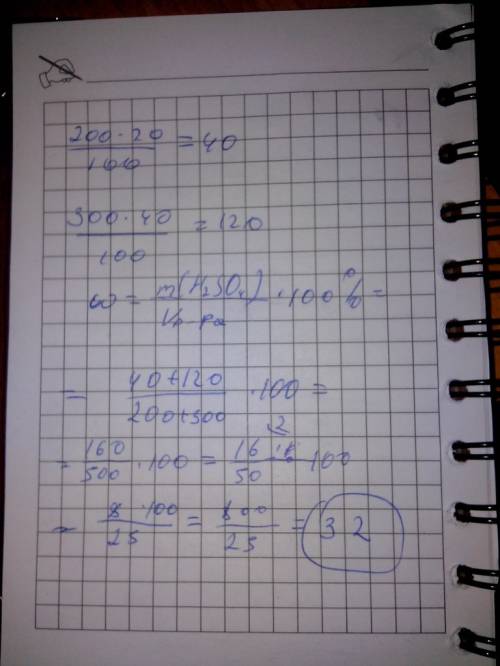 200·20/100 = 40
300·40/100 = 120
ω = m(H₂SO₄)/Vр-ра · 100% =
= 40+120/200+300 · 100 =
= 160/500 · 100 = 16/50 100
= 8·100/25 = 800/25 = 32